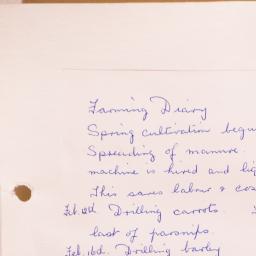 Farming Diary
Spring cultivation begu
Spreading of manure.
machine is hired and lig
This saves labour & cos
Feb. 12th. Drilling carrots.
last of parsnips.
Feb. 16th. Drilling barley